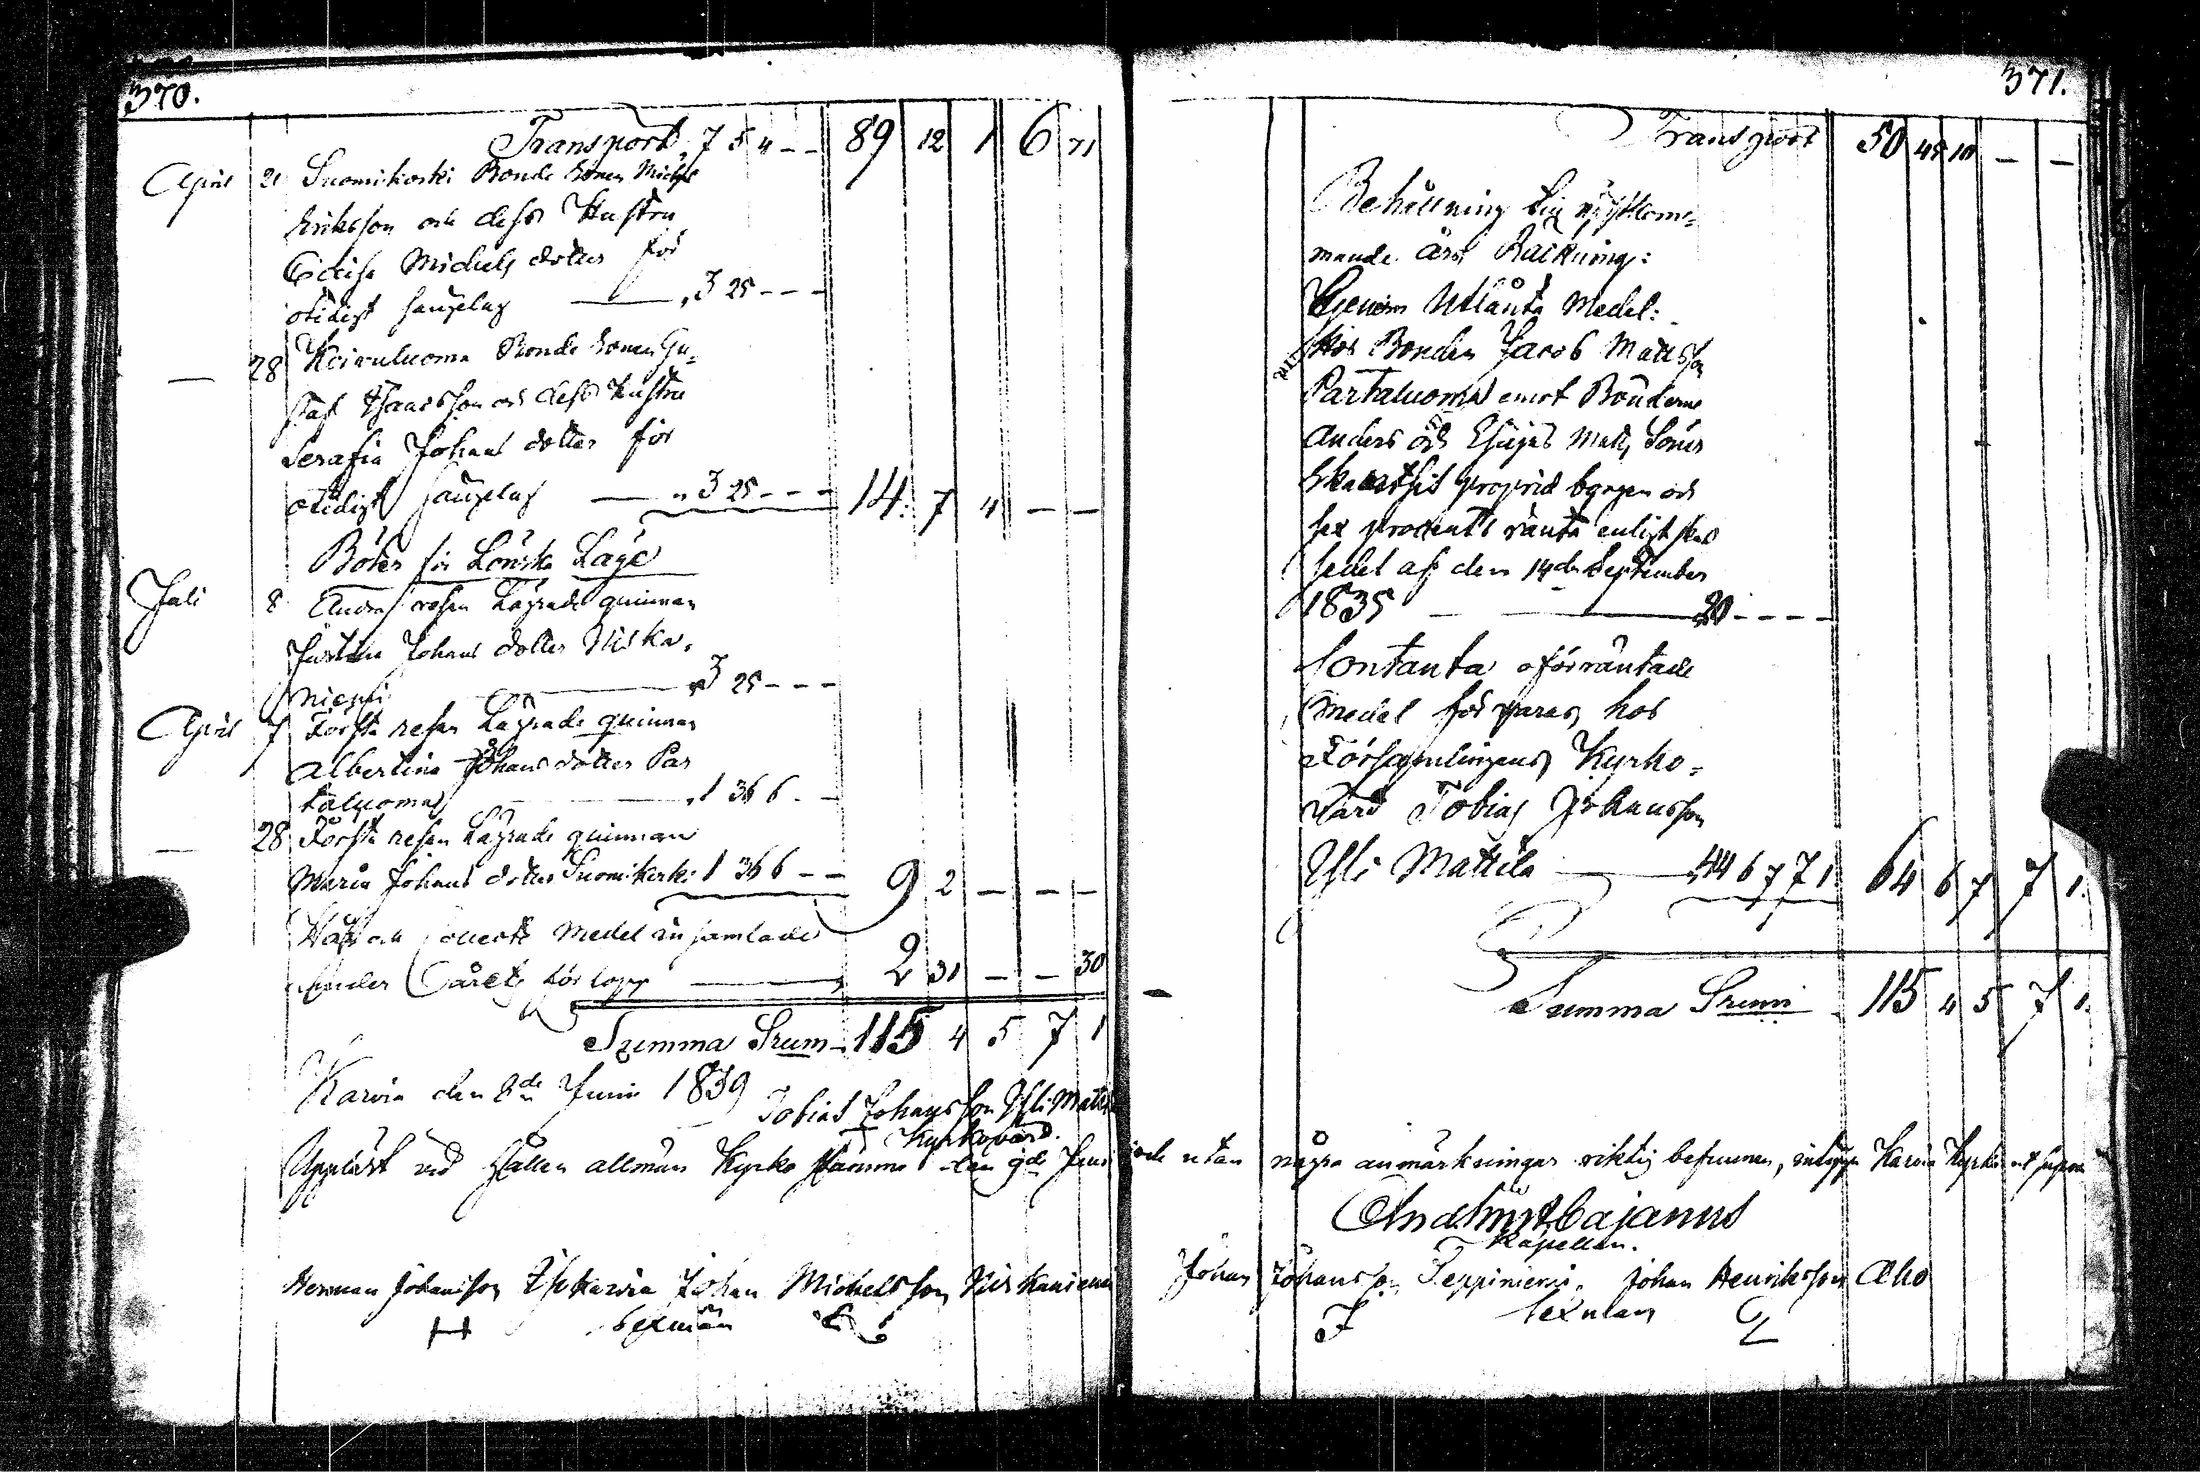 370.
Transport, 7 5 4 - - 89 12 1 6 71
April 21 Suomikoski Bonde Sonen Michel
Eriksson och dess Hustru
Michels dotter för
otidigt sänglag — „ 3 25 - - -
— 28 Koivuluoma Bonde Sonen Gu-
staf Isacsson och dess Hustru
Serafia Johans dotter för
otidigt sänglag — „ 3 25 - - - 14. 7 4 - -
Böter för Lönska Läge
Juli 8 Andra resan Lägrade quinnan
Johans dotter Niska-
niemi — „ 3 25 - - -
April 7 Första resan Lägrade quinnan
Albertina Johans dotter Par
taluoma — „ 1 36 6 - -
— 28 Första resan Lägrade quinnan
Maria Johans dotter Suomikoski 1 36 6 - - 9 2 - - -
Håf och Collects Medel insamlade
under årets förlopp — 2 31 - - 30
Summa Srum - 115 4 5 7 1
Karvia den 8de Junii 1839
Tobias Johansson Yli Mattila
Kyrkovärd.
Uppläst vid hållen allmän Kyrko Stämma den 9de Junii
Herman Johansson Johan Michelsson Niskaniemi
Sexmän
371.
Transport 50 45 10 - -
Behållning till nästkom-
mande års Räkning:
Genom Utlånta Medel:
Hos Bonden Jacob Mattsson
Partaluoma emot Bönderne
Anders och Esaias Matts Söner
proprie borgen och
sex procents ränta enligt skul
sedel af den 14de September
1835 — 20 - - - -
Contanta oförräntade
Medel förvaras hos
Församlingens Kyrko-
värd Tobias Johansson
Yli Mattila — 44 6 7 7 1. 64 6 7 7 1.
Summa Srum 115 4 5 7 1.
och utan några anmärkningar riktig befunnen, intygar Karvia Kyrka
Cajanus
Kapellan.
Johan Johansson Johan Henriksson Aho
J Sexman